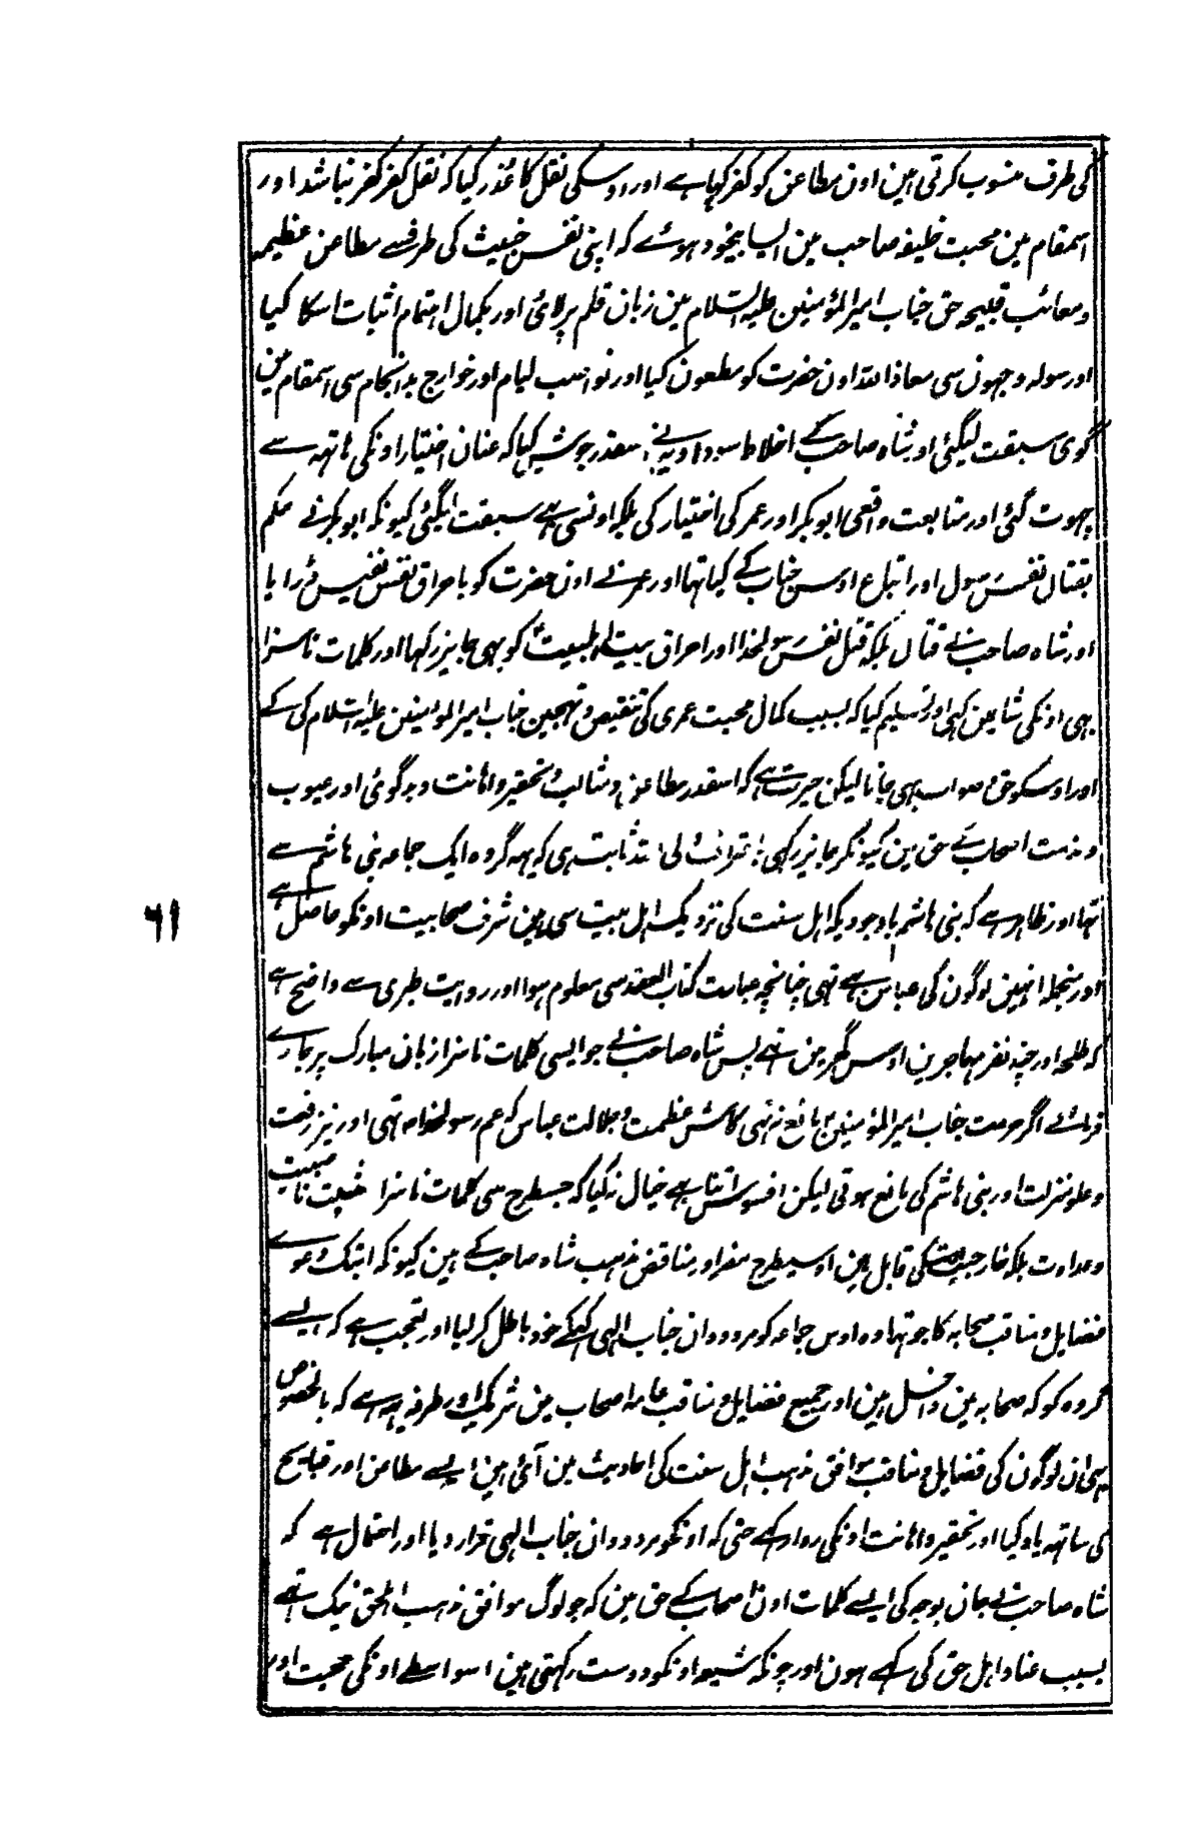 کی طرف منسوب کرتی ہین اون مطاعن کو کفر کہا ہے اور اوسکی نقل کا عذر کیا کہ نقل کفر کفر نباشد اور
اسمقام مین محبت خلیفہ صاحب مین ایسا بیخود ہوئے کہ اپنی نفس خبیث کی طرف سے مطاعن عظیمہ
و معائب قبیحہ حق جناب امیر المؤمنین علیہ السلام مین زبان قلم پر لائی اور بکمال اہتمام اثبات اسکا کیا
اور سولہ وجہون سی معاذ اللہ اون حضرت کو مطعون کیا اور نواصب لیام اور خوارج بد انجام سی اسمقام مین
گوی سبقت لیگئی اور شاہ صاحب کے اخلاط سوداویہ نے اسقدر جوش کیا کہ عنان اختیار اونکی ہاتہہ سے
چہوٹ گئی اور متابعت واقعی ابو بکر اور عمر کی اختیار کی بلکہ اونسی بہی سبقت لیگئی کیونکہ ابو بکر نے حکم
بقتال نفس رسول اور اتباع اوس جناب کے کیا تہا اور عمر نے اون حضرت کو باحراق نفس نفیس ڈرایا
اور شاہ صاحب نے قتال بلکہ قتل نفس رسولخدا اور احراق بیت اہلبیت کو بہی جایز رکہا اور کلمات ناسزا
بہی اونکی شان مین کہی اور تسلیم کیا کہ بسبب کمال محبت عمری کی تنقیص و تہجین جناب امیر المومنین علیہ السلام کی کے
اور اوسکو حق و صواب بہی جانا لیکن حیرت ہے کہ اسقدر مطاعن و مثالب و تحقیر و اہانت و بدگوئی اور عیوب
و مذمت اصحاب کے حق مین کیونکر جایز رکہی ثابت ہی کہ یہہ گروہ ایک جماعہ بنی ہاشم سے
تہا اور ظاہر ہے کہ بنی ہاشم باوجودیکہ اہل سنت کی نزدیک اہل بیت سی ہین شرف صحابیت اونکو حاصل ہے
اور منجملہ انہین لوگون کی عباس بہی تہی چنانچہ عبارت کتاب العقد سی معلوم ہوا اور روایت طبری سے واضح ہے
کہ طلحہ اور چند نفر مہاجرین اوس گہر مین تہے پس شاہ صاحب نے جو ایسی کلمات ناسزا زبان مبارک پر جاری
فرمائے اگر حرمت جناب امیر المؤمنین مانع نہ تہی کاش عظمت و جلالت عباس کہ عم رسولخدا تہی اور نیز رفعت
و علو منزلت اور بنی ہاشم کی مانع ہوتی لیکن افسوس اتنا بہی خیال نہ کیا کہ جسطرح سی کلمات ناسزا مثبت ناصبیت
و عداوت بلکہ خارجیت کی قابل ہین اوسیطرح مضر اور مناقض مذہب شاہ صاحب کے ہین کیونکہ ابتک دعوے
فضایل و مناقب صحابہ کا جو تہا وہ اوس جماعہ کو مردودان جناب الہی کہکے خود باطل کر لیا اور تعجب ہے کہ ایسے
گروہ کو کہ صحابہ مین داخل ہین اور جمیع فضایل و مناقب عامہ اصحاب مین شریک اور طرفہ یہہ ہے کہ بالخصوص
بہی ان لوگون کی فضایل و مناقب موافق مذہب اہل سنت کی احادیث مین آئی ہین ایسے مطاعن اور قبایح
کی ساتہہ یاد کیا اور تحقیر و اہانت اونکی روا رکہے حتی کہ اونکو مردودان جناب الہی قرار دیا اور احتمال ہے کہ
شاہ صاحب نے جان بوجہ کی ایسے کلمات اون اصحاب کے حق مین کہ جو لوگ موافق مذہب اہل حق نیک تہے
بسبب عناد اہل حق کی کہے ہون اور چونکہ شیعہ اونکو دوست رکہتی ہین اسواسطے اونکی محبت اور
۶۱